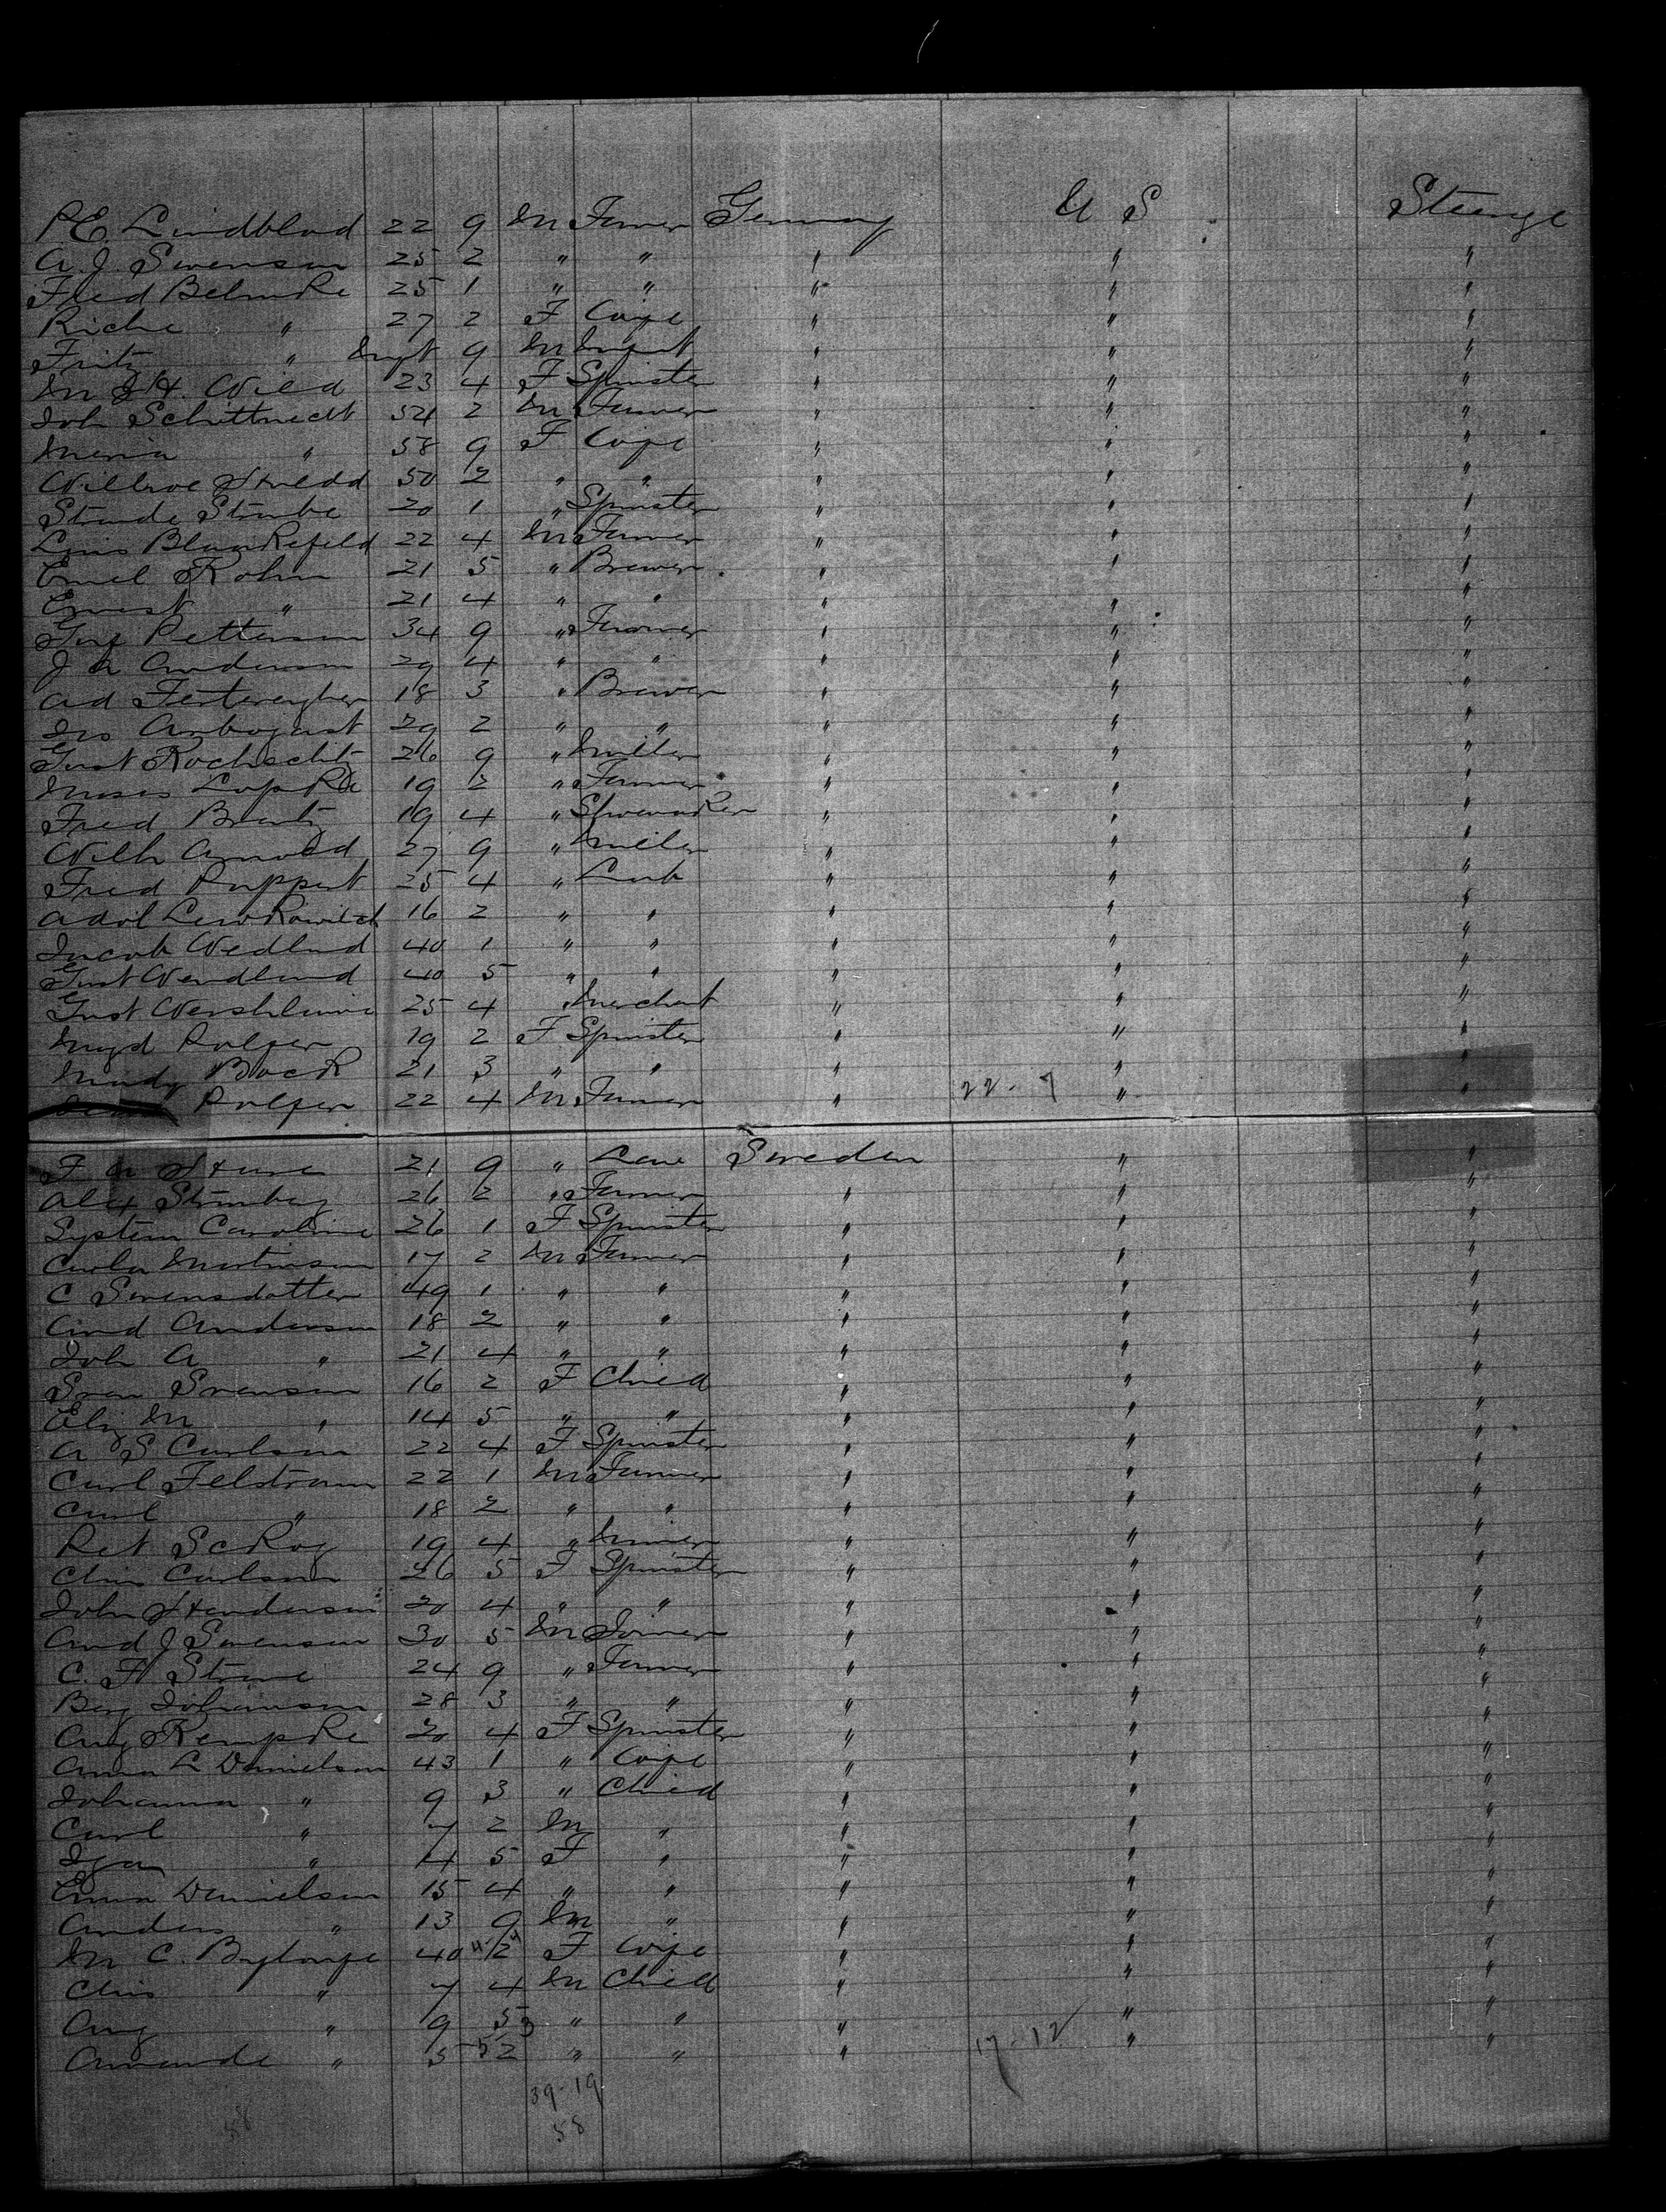 P.E. Lindblad 22 9 M Farmer Germany U S Steerage
A. J. Swenson 25 2 " " " " "
Fred Behnke 25 1 " " " " "
Riche " 27 2 F Wife " " "
Fritz " Inft 9 M Infant " " "
M J H. Wild 23 4 F Spinster " " "
Joh Schuttnecht 54 2 M Farmer " " "
Maria " 58 9 F Wife " " "
50 2 " " " " "
Strube 20 1 " Spinster " " "
Louis Blankefeld 22 4 M Farmer " " "
Emel Rohm 21 5 " Brewer " " "
Ernest " 21 4 " " " " "
Petterson 34 9 " Farmer " " "
J A Anderson 29 4 " " " " "
Ad 18 3 " Brewer " " "
Arbogast 29 2 " " " " "
Gust Rochecht 26 9 " Miller " " "
Moses 19 2 " Farmer " " "
Fred 19 4 " Shoemaker " " "
Wilh Arnold 27 9 " Miller " " "
Fred Ruppert 25 4 " Lab " " "
Adol Lewkowitch 16 2 " " " " "
Jacob Wedlund 40 1 " " " " "
Gust Wendlund 40 5 " " " " "
Gust 25 4 " Merchant " " "
Magd Rolfer 19 2 F Spinster " " "
Bock 21 3 " " " " "
Rolfer 22 4 M Farmer " 22-7 " "
F A 21 9 " Sweden " "
Alex Stromberg 26 2 " Farmer " " "
System Caroline 26 1 F Spinster " " "
Martinson 17 2 M Farmer " " "
C Swensdotter 49 1 " " " " "
And Anderson 18 2 " " " " "
Joh A " 21 4 " " " " "
Sven Svenson 16 2 F Child " " "
Eliz M " 14 5 " " " " "
A S Carlson 22 4 F Spinster " " "
Carl Felstrom 22 1 M Farmer " " "
Carl " 18 2 " " " " "
19 4 " Miner " " "
Chris Carlson 26 5 F Spinster " " "
John Henderson 20 4 " " " " "
And J Swenson 30 5 M Joiner " " "
C. F. 24 9 " Farmer " " "
Johanson 28 3 " " " " "
Aug Kempke 20 4 F Spinster " " "
Anna L Danielson 43 1 " Wife " " "
Johanna " 9 3 " Child " " "
Carl " 7 2 M " " " "
" 4 5 F " " " "
Emma Danielson 15 4 " " " " "
Anders " 13 9 M " " " "
M C. 40 F Wife " " "
Chris " 7 4 M Child " " "
Aug " 9 5 3 " " " " "
Amanda " 5 5 2 " " " 17-12 " "
39-19
58 58